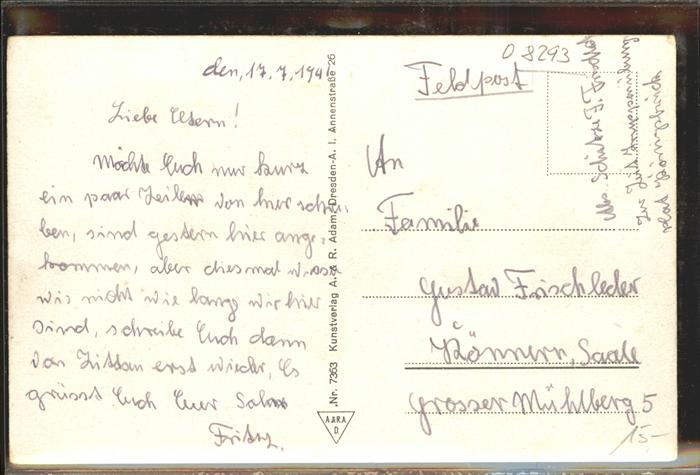 den, 17.7.194
Liebe Eltern!
Möchte Euch nur kurz
ein paar Zeilen von hier schrei-
ben, sind gestern hier ange-
kommen, aber diesmal wissen
wir nicht wie lang wir hier
sind, schreibe Euch dann
von Zittau erst wieder, Es
grüsst Euch Euer Sohn
Fritz.
Nr. 7363 Kunstverlag A. & R. Adam, Dresden-A. I, Annenstraße 26
AARA
D.
O 8293
Feldpost
An
Familie
Gustav Frischleder
Könnern, Saale
Grosser Mühlberg 5
15,-
Abs. Schütze F. Frischleder